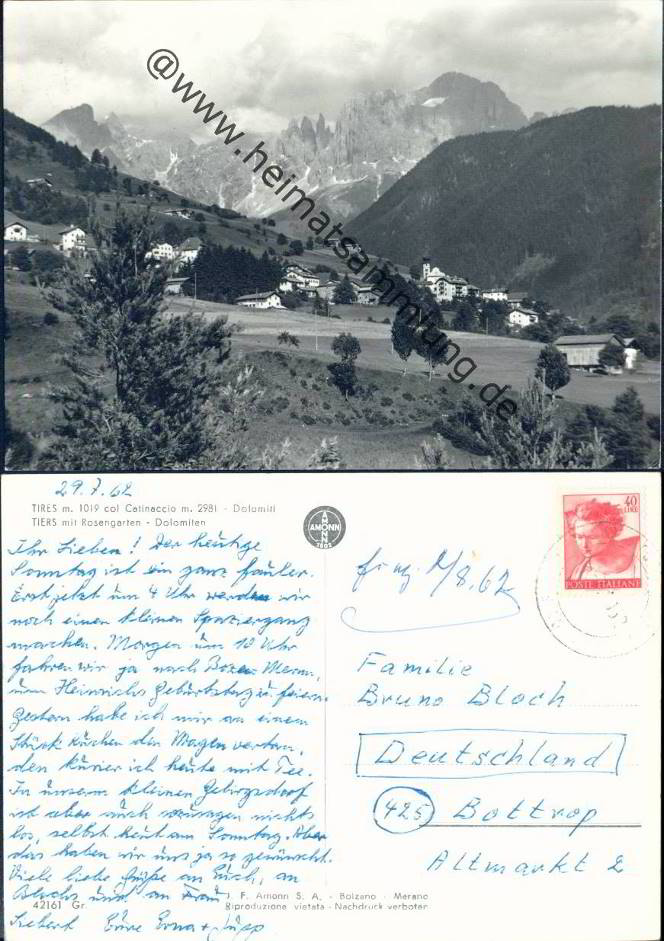 @www.heimatsammlung.de
29.7.62
TIRES m. 1019 col Catinaccio m. 2981 - Dolomiti
TIERS mit Rosengarten - Dolomiten
AMONN
40
LIRE
POSTE ITALIANE
Ihr Lieben! Der heutige
Sonntag ist ein ganz fauler.
Erst jetzt um 4 Uhr werden wir
noch einen kleinen Spaziergang
machen. Morgen um 10 Uhr
fahren wir ja nach Bozen Meran,
um Heinrichs Geburtstag zu feiern.
Gestern habe ich mir an einem
Stück Kuchen den Magen verdorben,
den kurier ich heute mit Tee.
In unserem kleinen Gebirgsdorf
ist aber auch sozusagen nichts
los, selbst heut am Sonntag. Aber
das haben wir uns ja so gewünscht.
Viele liebe Grüße an Euch, an
Blochs und an Frau
Siebert Eure Erna + Jupp
1/8.62
Familie
Bruno Bloch
Deutschland
(425) Bottrop
Altmarkt 2
42161 Gr.
F. Amonn S. A. - Bolzano - Merano
Riproduzione vietata - Nachdruck verboten